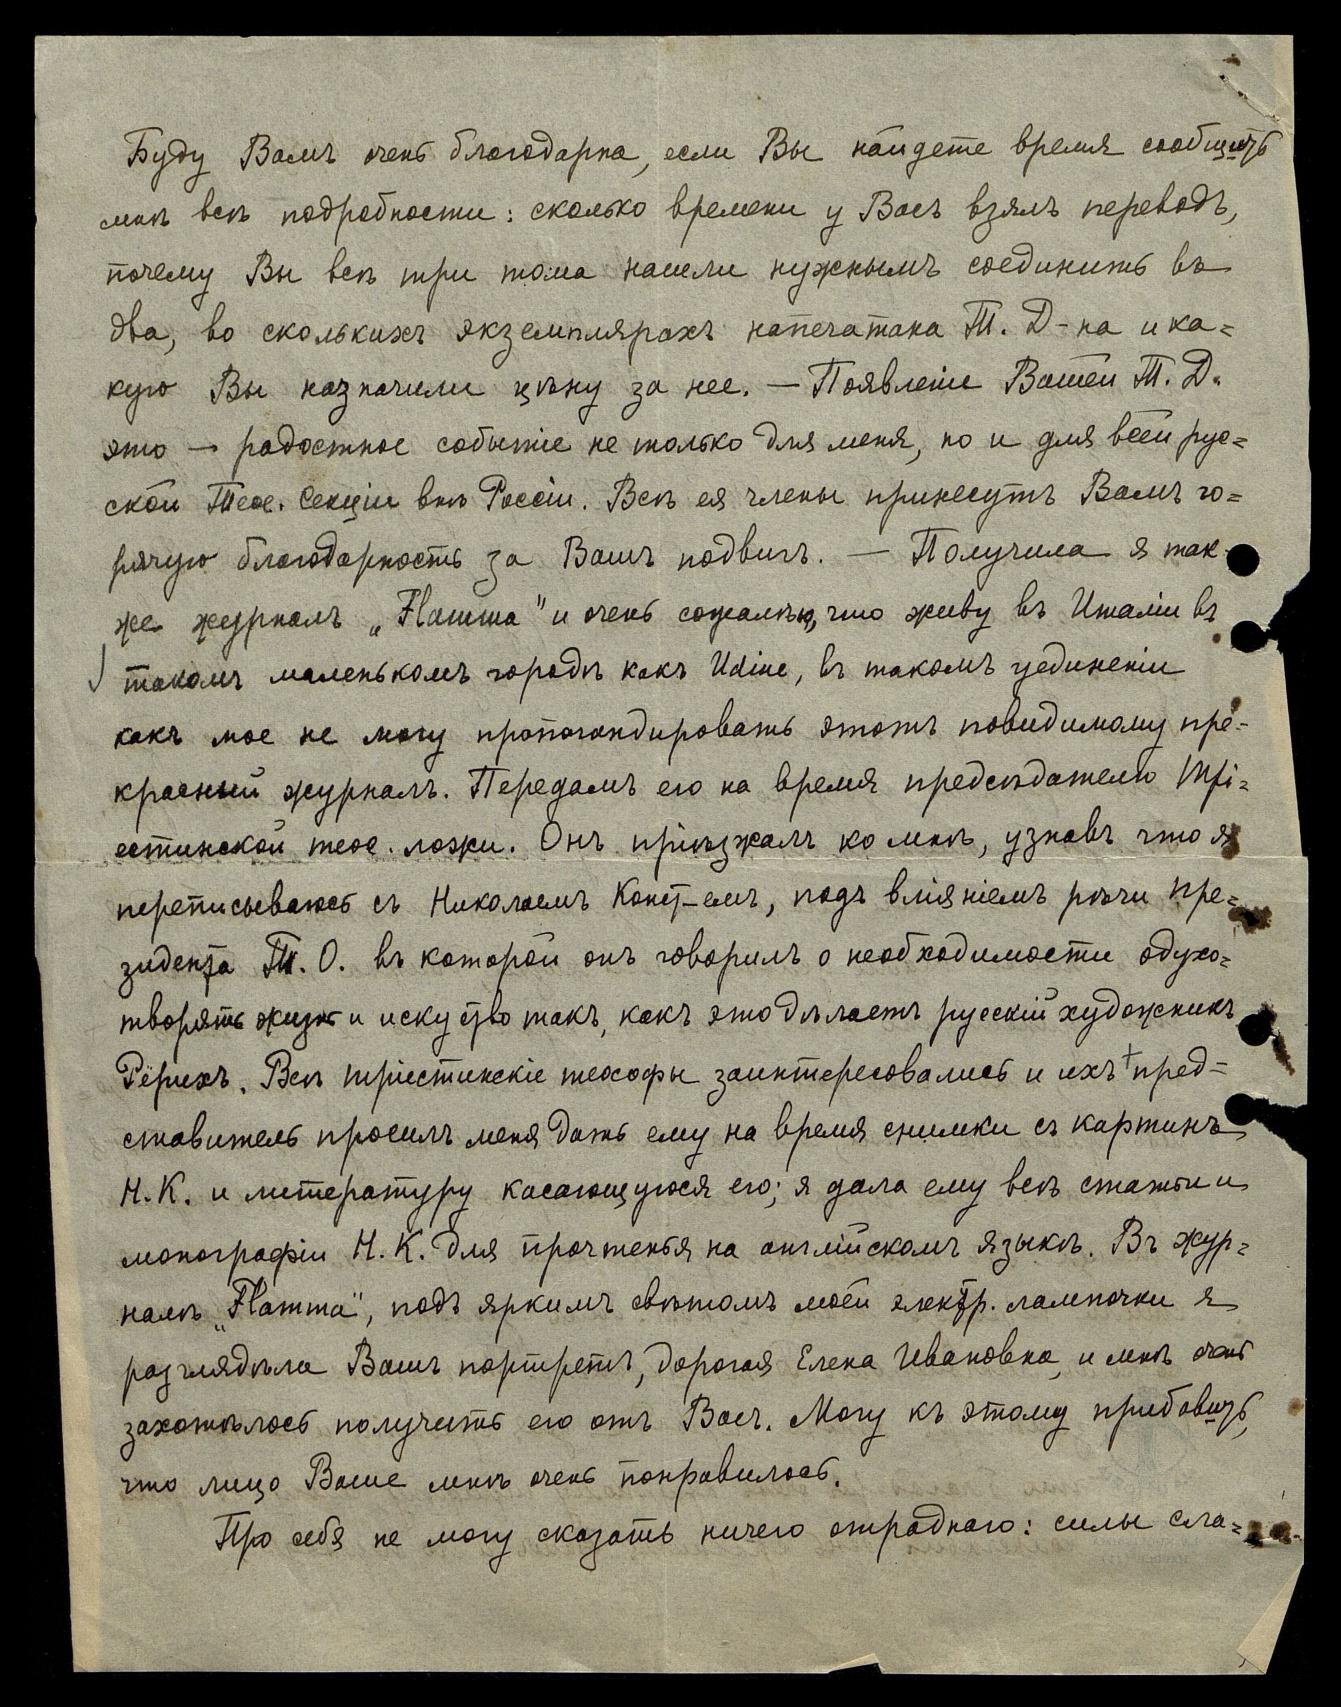 Буду Вамъ очень благодарна, если Вы найдете время сообщить
мнѣ всѣ подробности: сколько времени у Васъ взялъ переводъ,
почему Вы всѣ три тома нашли нужнымъ соединить въ
два, во сколькихъ экземплярахъ напечатана Т. Д-на и ка=
кую Вы назначили цѣну за нее. — Появленіе Вашей Т. Д.
это — радостное событіе не только для меня, но и для всей рус=
ской Теос. Секціи внѣ Россіи. Всѣ ея члены принесутъ Вамъ го=
рячую благодарность за Вашъ подвигъ. — Получила я так
же журналъ „Flamma" и очень сожалѣю, что живу въ Италіи въ
такомъ маленькомъ городѣ какъ Udine, въ такомъ уединеніи
какъ мое не могу пропогандировать этотъ повидимому пре-
красный журналъ. Передамъ его на время предсѣдателю Трі=
естинской теос. ложи. Онъ пріѣзжалъ ко мнѣ, узнавъ что я
переписываюсь съ Николаемъ Конст-емъ, подъ вліяніемъ рѣчи пре=
зидента Т. О. въ которой онъ говорилъ о необходимости одухо=
творять жизнь и искуство такъ, какъ это дѣлаетъ русскій художникъ
Рёрихъ. Всѣ тріестинскіе теософы заинтересовались и ихъ + пред=
ставитель просилъ меня дать ему на время снимки съ картинъ
Н. К. и литературу касающуюся его; я дала ему всѣ статьи и
монографіи Н. К. для прочтенья на англійскомъ языкѣ. Въ жур=
налѣ „Flamma", подъ яркимъ свѣтомъ моей электр. лампочки я
разглядѣла Вашъ портретъ, дорогая Елена Ивановна, и мнѣ очень
захотѣлось получить его отъ Васъ. Могу къ этому прибавить,
что лицо Ваше мнѣ очень понравилось.
Про себя не могу сказать ничего отраднаго: силы сла=